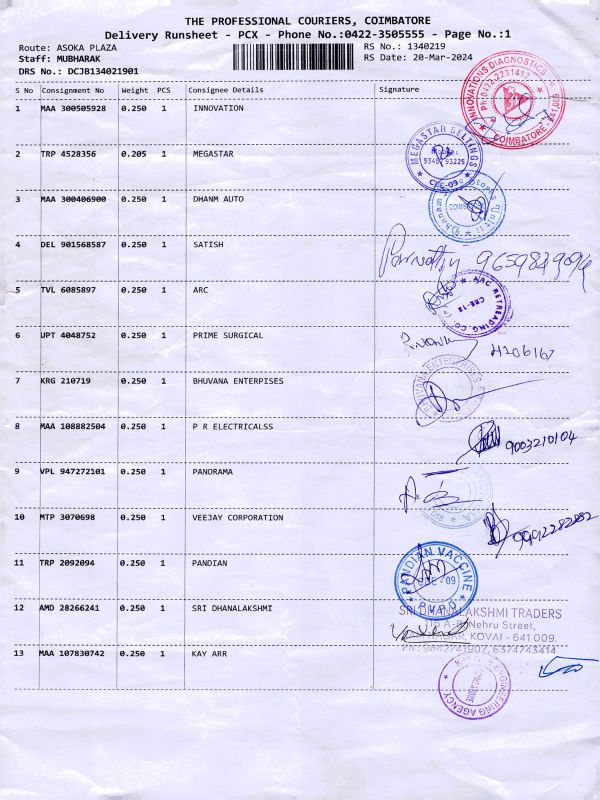 THE PROFESSIONAL COURIERS, COIMBATORE
Delivery Runsheet - PCX - Phone No.:0422-3505555 - Page No.:1
Route: ASOKA PLAZA
RS No.: 1340219
Staff: MUBHARAK
RS Date: 20-Mar-2024
DRS No.: DCJB134021901
S No Consignment No Weight PCS Consignee Details Signature
1 MAA 300505928 0.250 1 INNOVATION
INNOVATIONS DIAGNOSTICS
Ph:0422-2231412
COIMBATORE - 641 009
2 TRP 4528356 0.205 1 MEGASTAR
MEGASTAR BELTINGS
93225
CBE-09
3 MAA 300406900 0.250 1 DHANM AUTO
4 DEL 901568587 0.250 1 SATISH
5 TVL 6085897 0.250 1 ARC
ARC RETREADING CO.
CBE-18
6 UPT 4048752 0.250 1 PRIME SURGICAL
7 KRG 210719 0.250 1 BHUVANA ENTERPISES
8 MAA 108882504 0.250 1 P R ELECTRICALSS
9003210104
9 VPL 947272101 0.250 1 PANORAMA
10 MTP 3070698 0.250 1 VEEJAY CORPORATION
11 TRP 2092094 0.250 1 PANDIAN
PANDIAN VACCINE
12 AMD 28266241 0.250 1 SRI DHANALAKSHMI
SRI DHANALAKSHMI TRADERS
Nehru Street,
KOVAI - 641 009.
6374743414
13 MAA 107830742 0.250 1 KAY ARR
ENGINEERING AGENCY